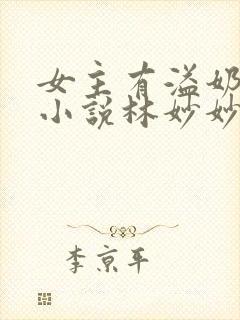 女主有溢奶
小说林妙妙
李京平